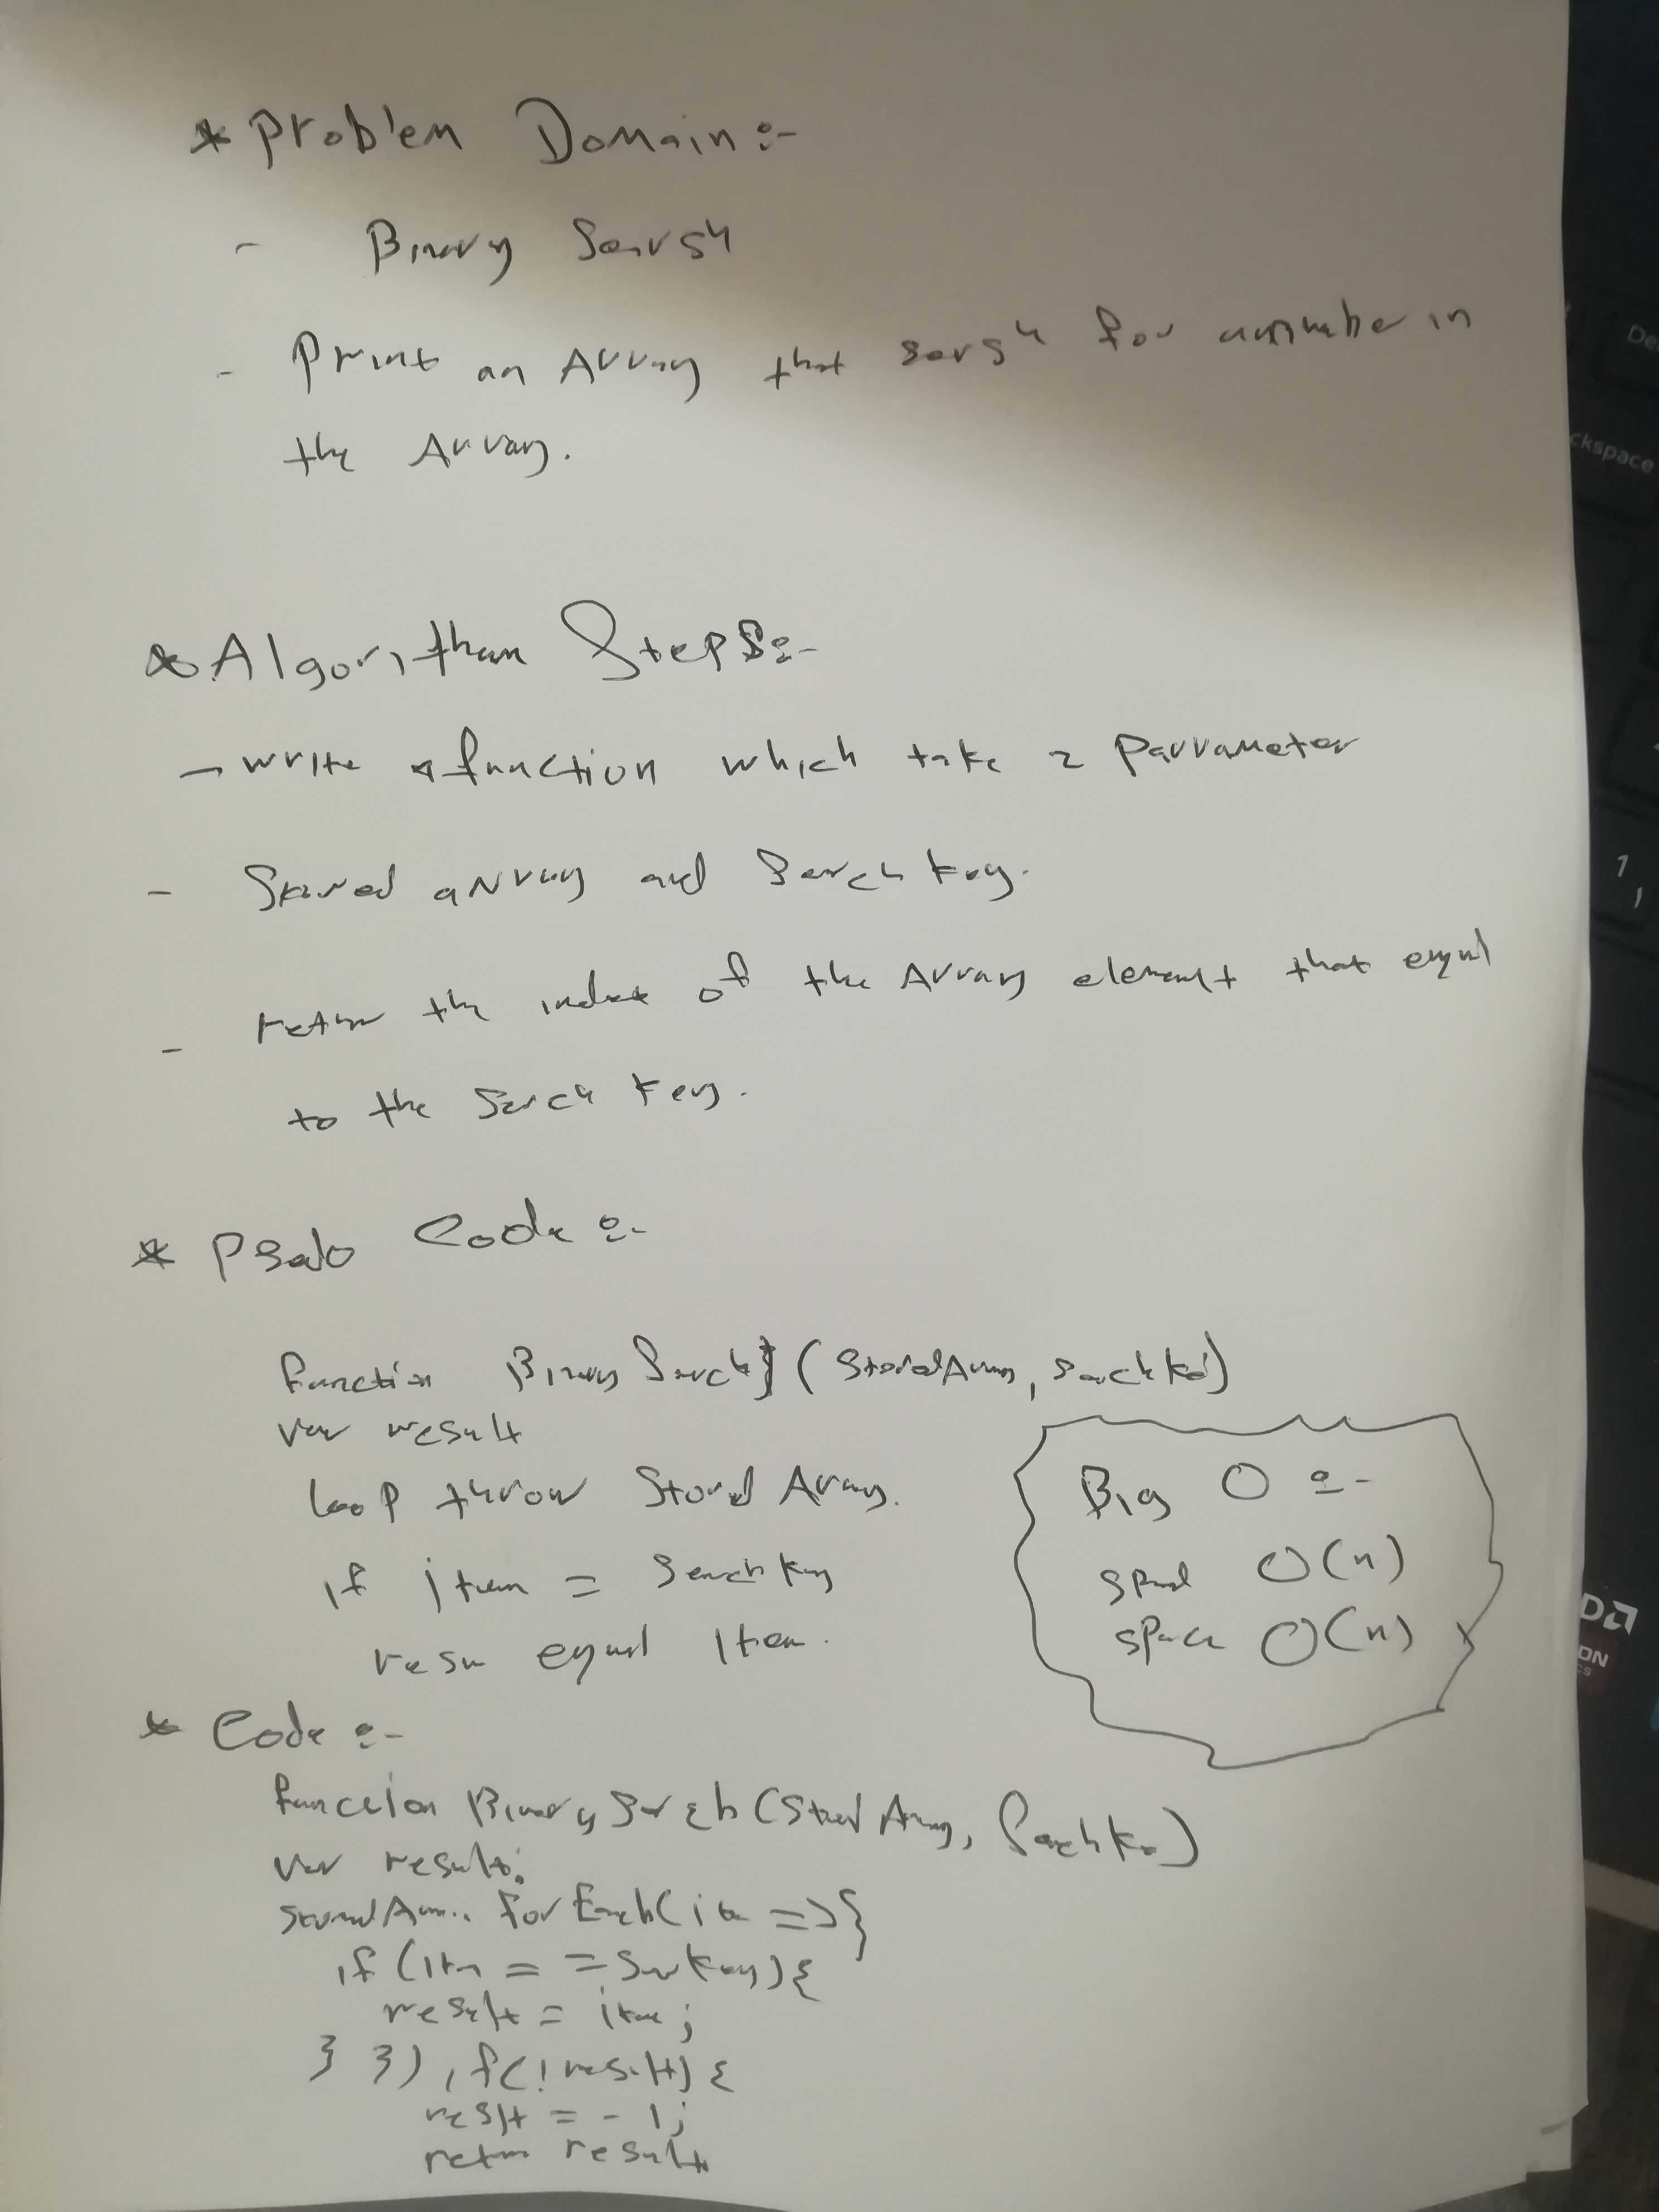 * Problem Domain:-
- Binary Sersh
- Print an Array that sersh for a number in
the Array.
* Algorithm Steps:-
- write a function which take 2 Parrameter
- Stored array and Serch key.
- return the index of the Array element that equal
to the Serch key.
* Psedo Code:-
function Binary Serch (StoredArray, Serch
var result
loop throw Stored Array.
if item = Serch key
resu equal Item.
Big O :-
speed O(n)
space O(n)
* Code:-
function Binary Serch (Stored Array,
var result;
forEach( =>}
if ( == ){
result = ;
} }) if(!result) {
reslt = -1;
retrn result
De
ckspace
1